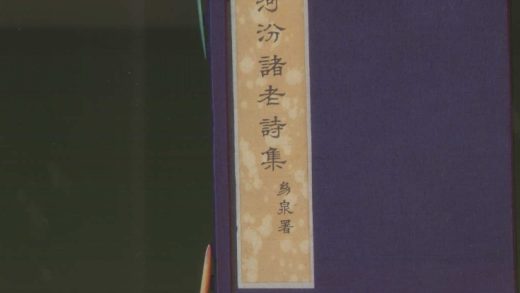 河汾諸老詩集
易泉署